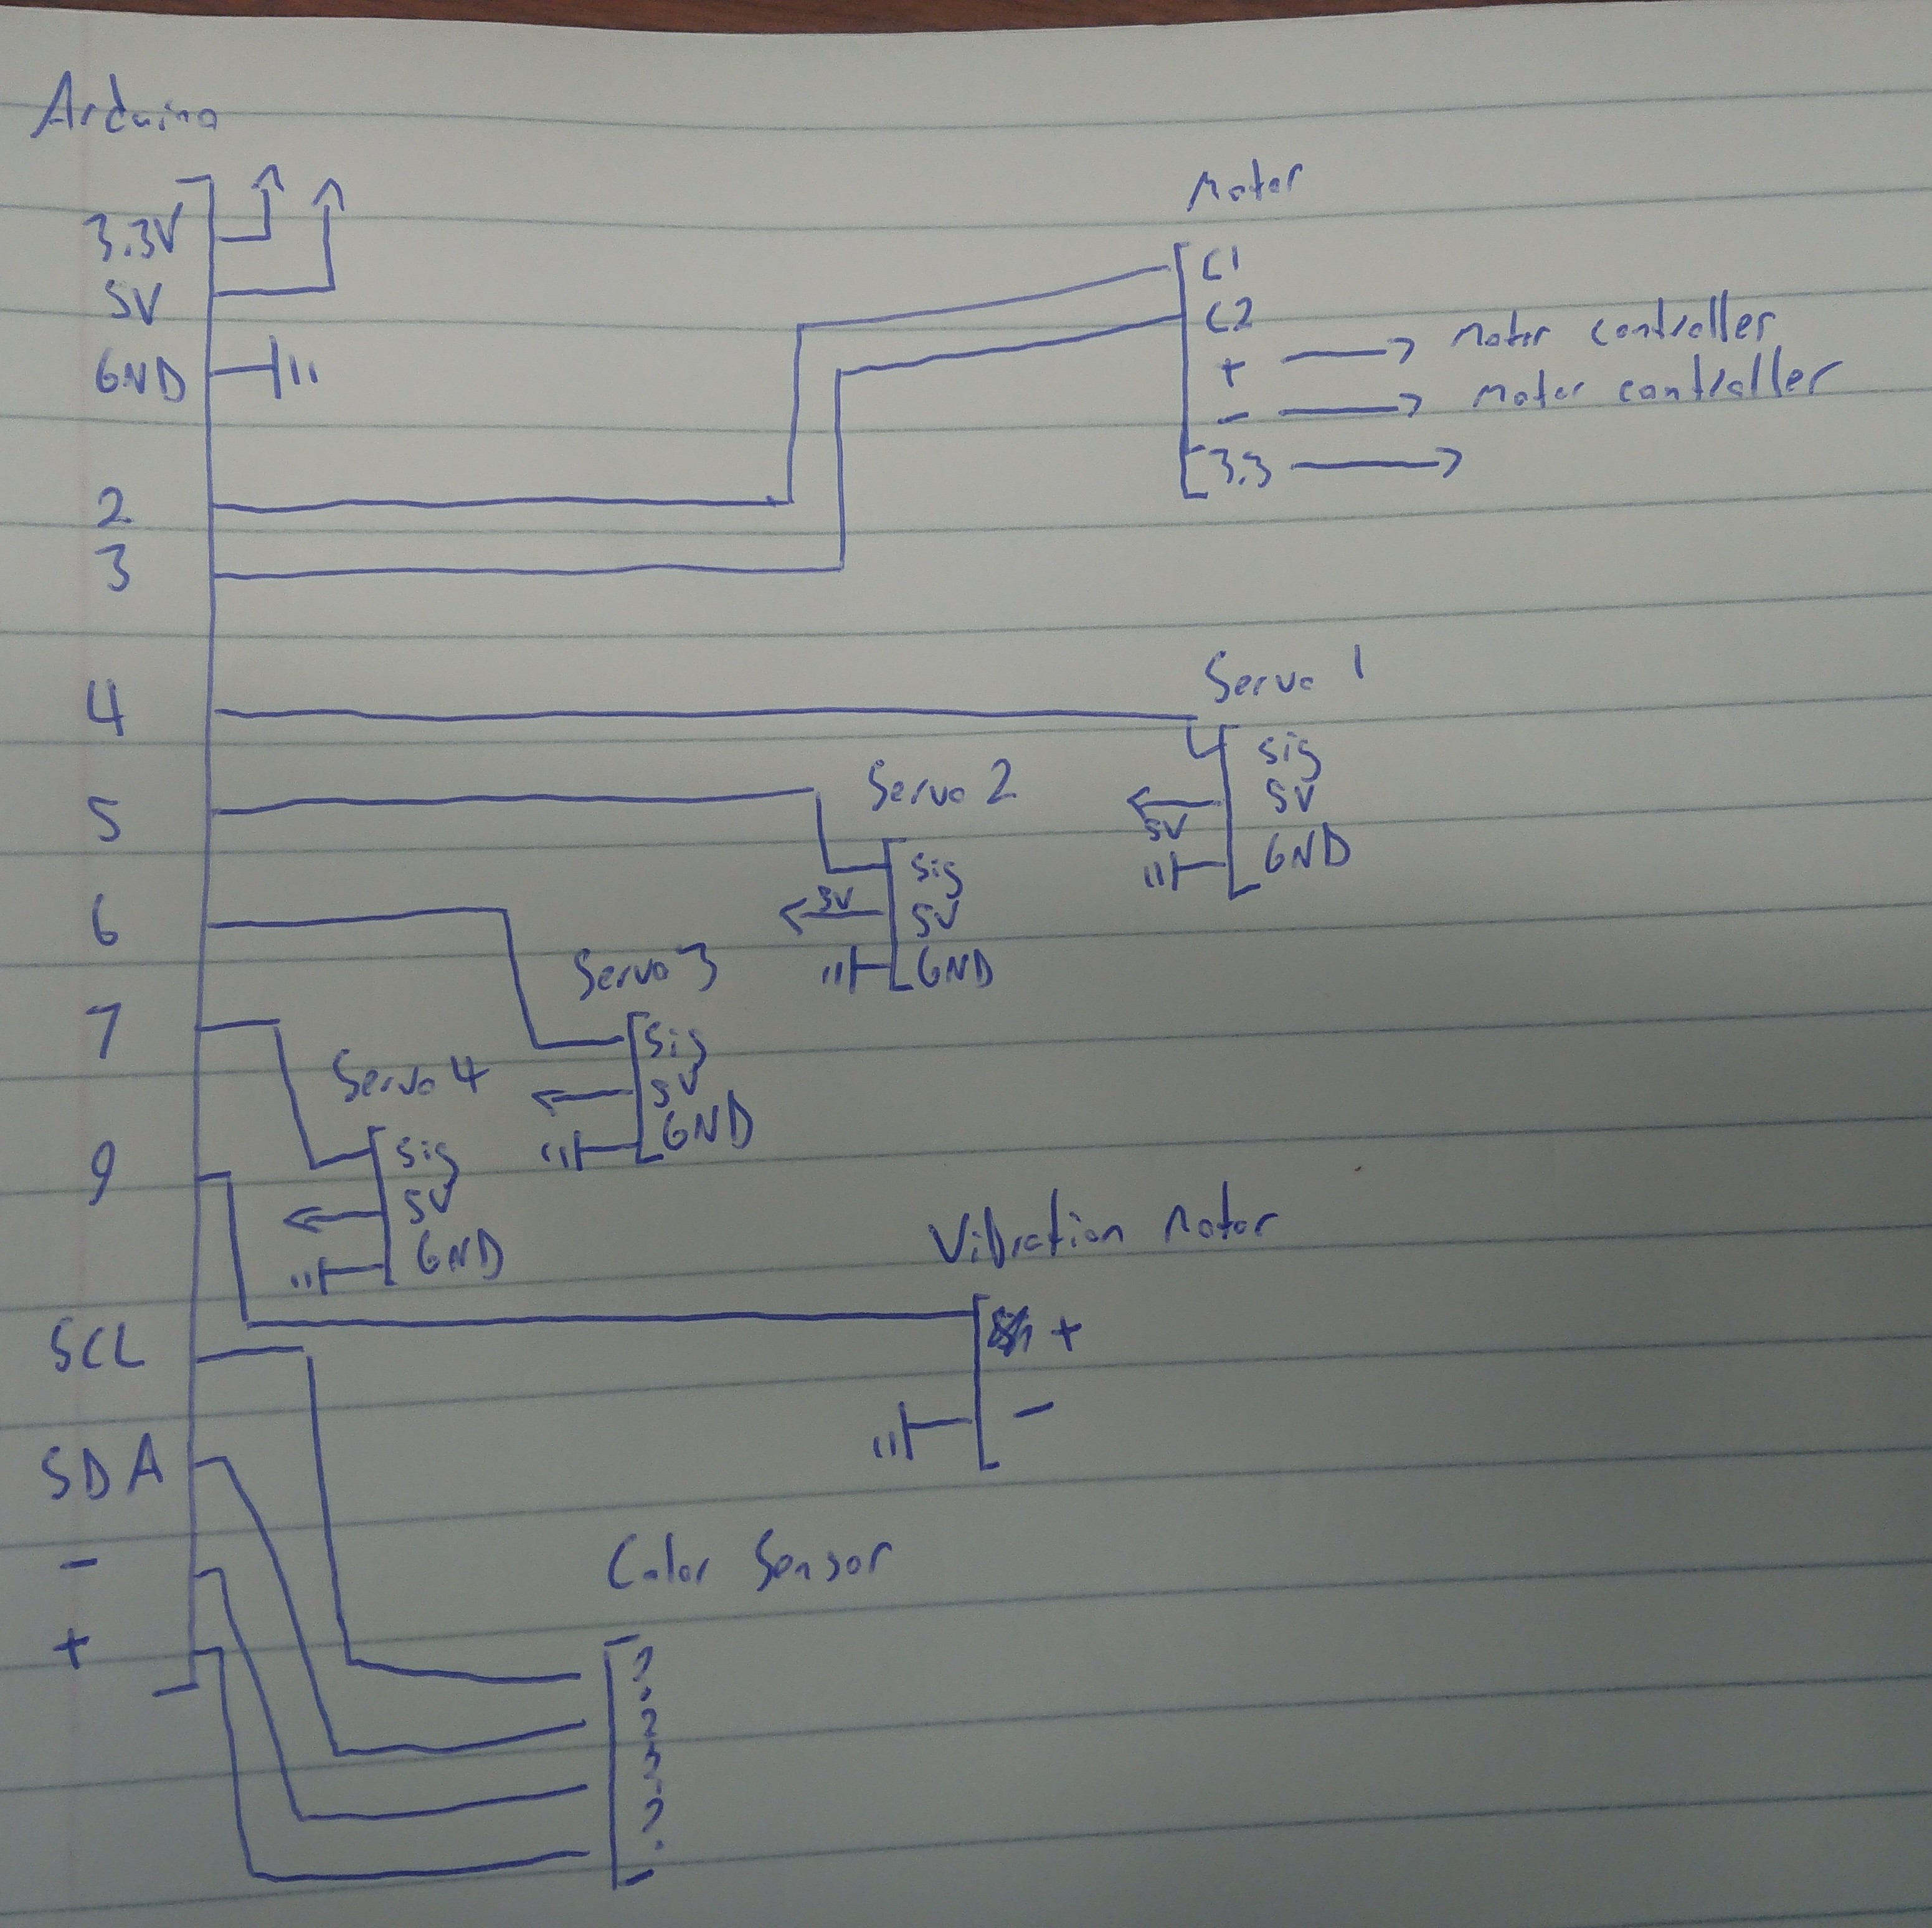 Arduino
3.3V
5V
GND
2
3
4
5
6
7
9
SCL
SDA
-
+
Motor
C1
C2
+ → motor controller
- → motor controller
3.3 →
Servo 1
sig
5V
5V
GND
Servo 2
sig
5V
5V
GND
Servo 3
sig
5V
GND
Servo 4
sig
5V
GND
Vibration motor
+
-
Color Sensor
?
?
?
?